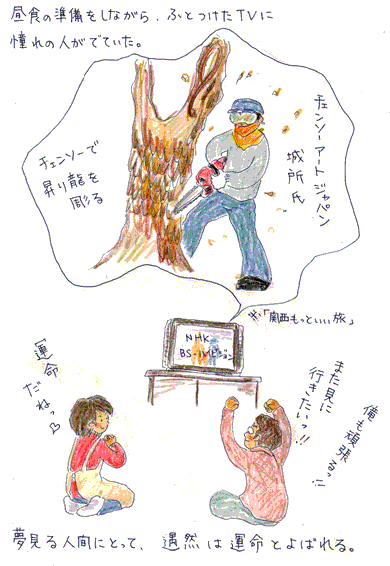 昼食の準備をしながら、ふとつけたTVに
憧れの人がでていた。
チェンソーアートジャパン
城所氏
チェンソーで
昇り龍を
彫る
※「関西もっといい旅」
NHK
BS-ハイビジョン
運命
だねっ
また見に
行きたいっ!!
俺も頑張るっ!!
夢見る人間にとって、偶然は運命とよばれる。